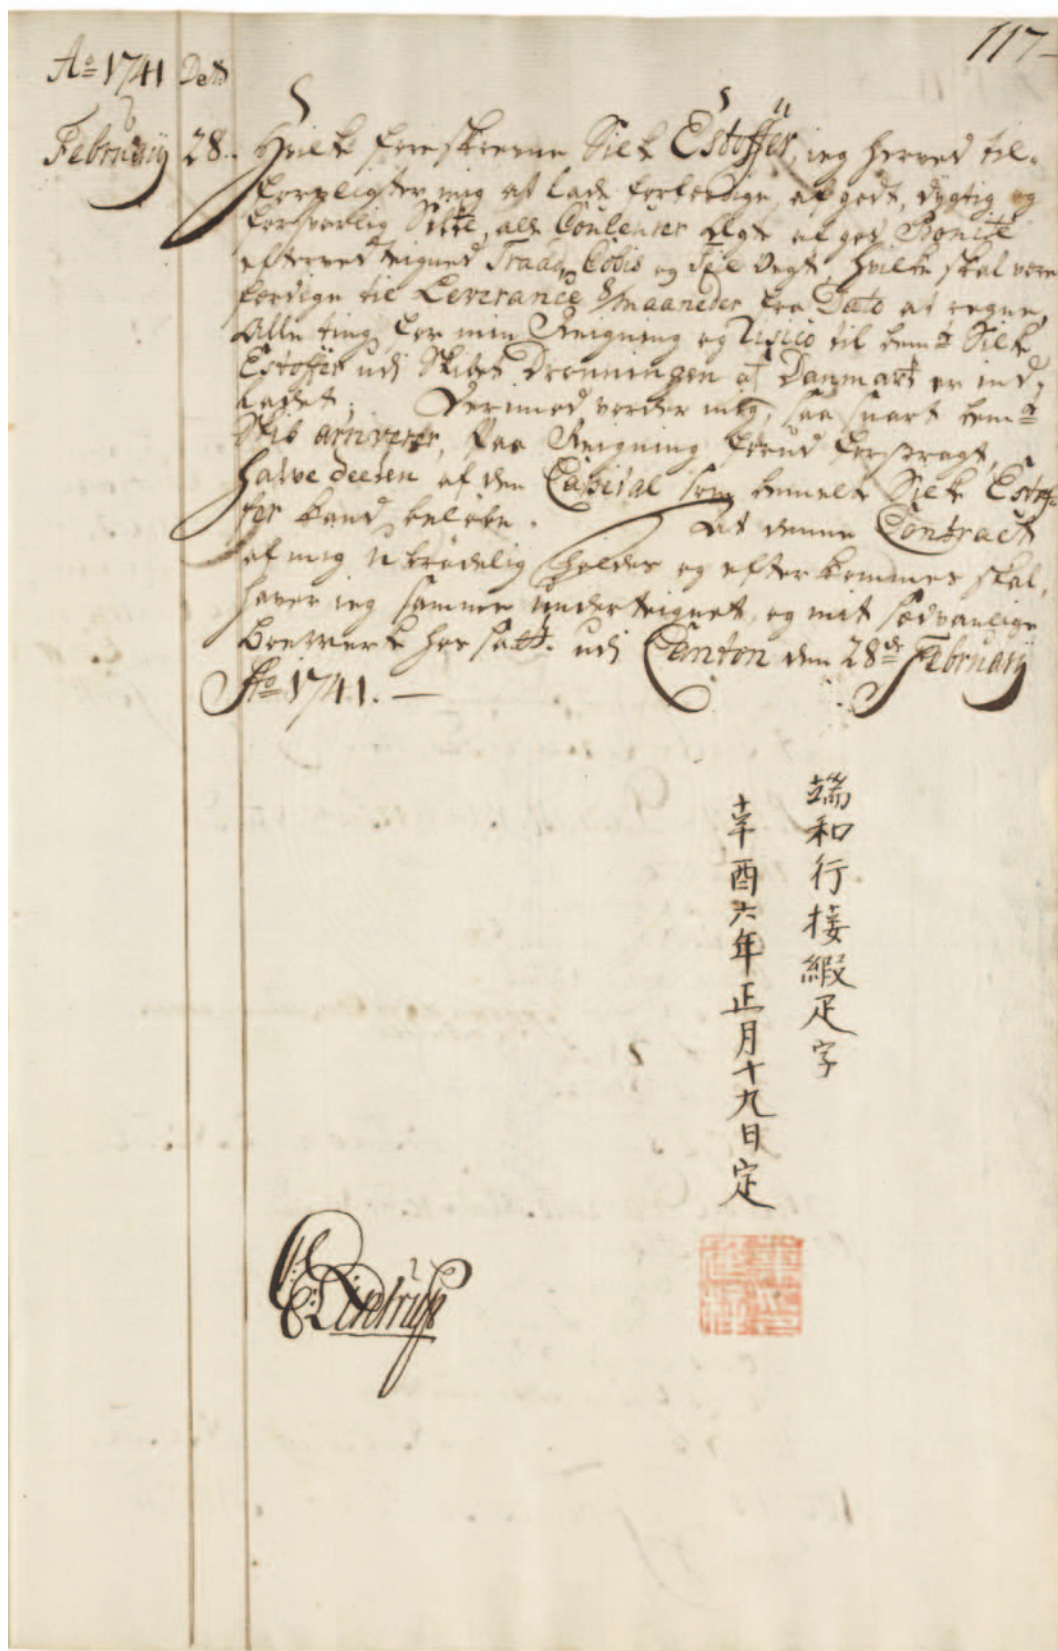 117
Ao 1741 Dato
February 28. Hvilke foreskrevne Silke Estoffer, ieg herved til-
forpligter mig at lade forferdige, af godt, dygtig og
forsvarlig Silke, alle Couleurer ægte af god Bonité
efterved teigned Traad, Cobis og Teil Vegt, hvilke skal være
færdige til Leverance 8/maaneder fra Dato at regne,
Alle ting for min Reigning og Risico til bemte Silke
Estoffer udj Skibet Dronningen af Danmark er ind-
ladet; Derimod vorder mig, saa snart bemte
Skib arriverer, paa Reigning forud forstragt,
halve deelen af den Capital som bemelte Silke Estof-
fer kand beløbe. At denne Contract
af mig Ubrødelig holdes og efterkommes skal,
haver ieg samme underteignet, og mit sædvanlige
boemerke hos satt. udj Canton den 28de February
Ao 1741. —
端和行接緞疋字
辛酉六年正月十九日定